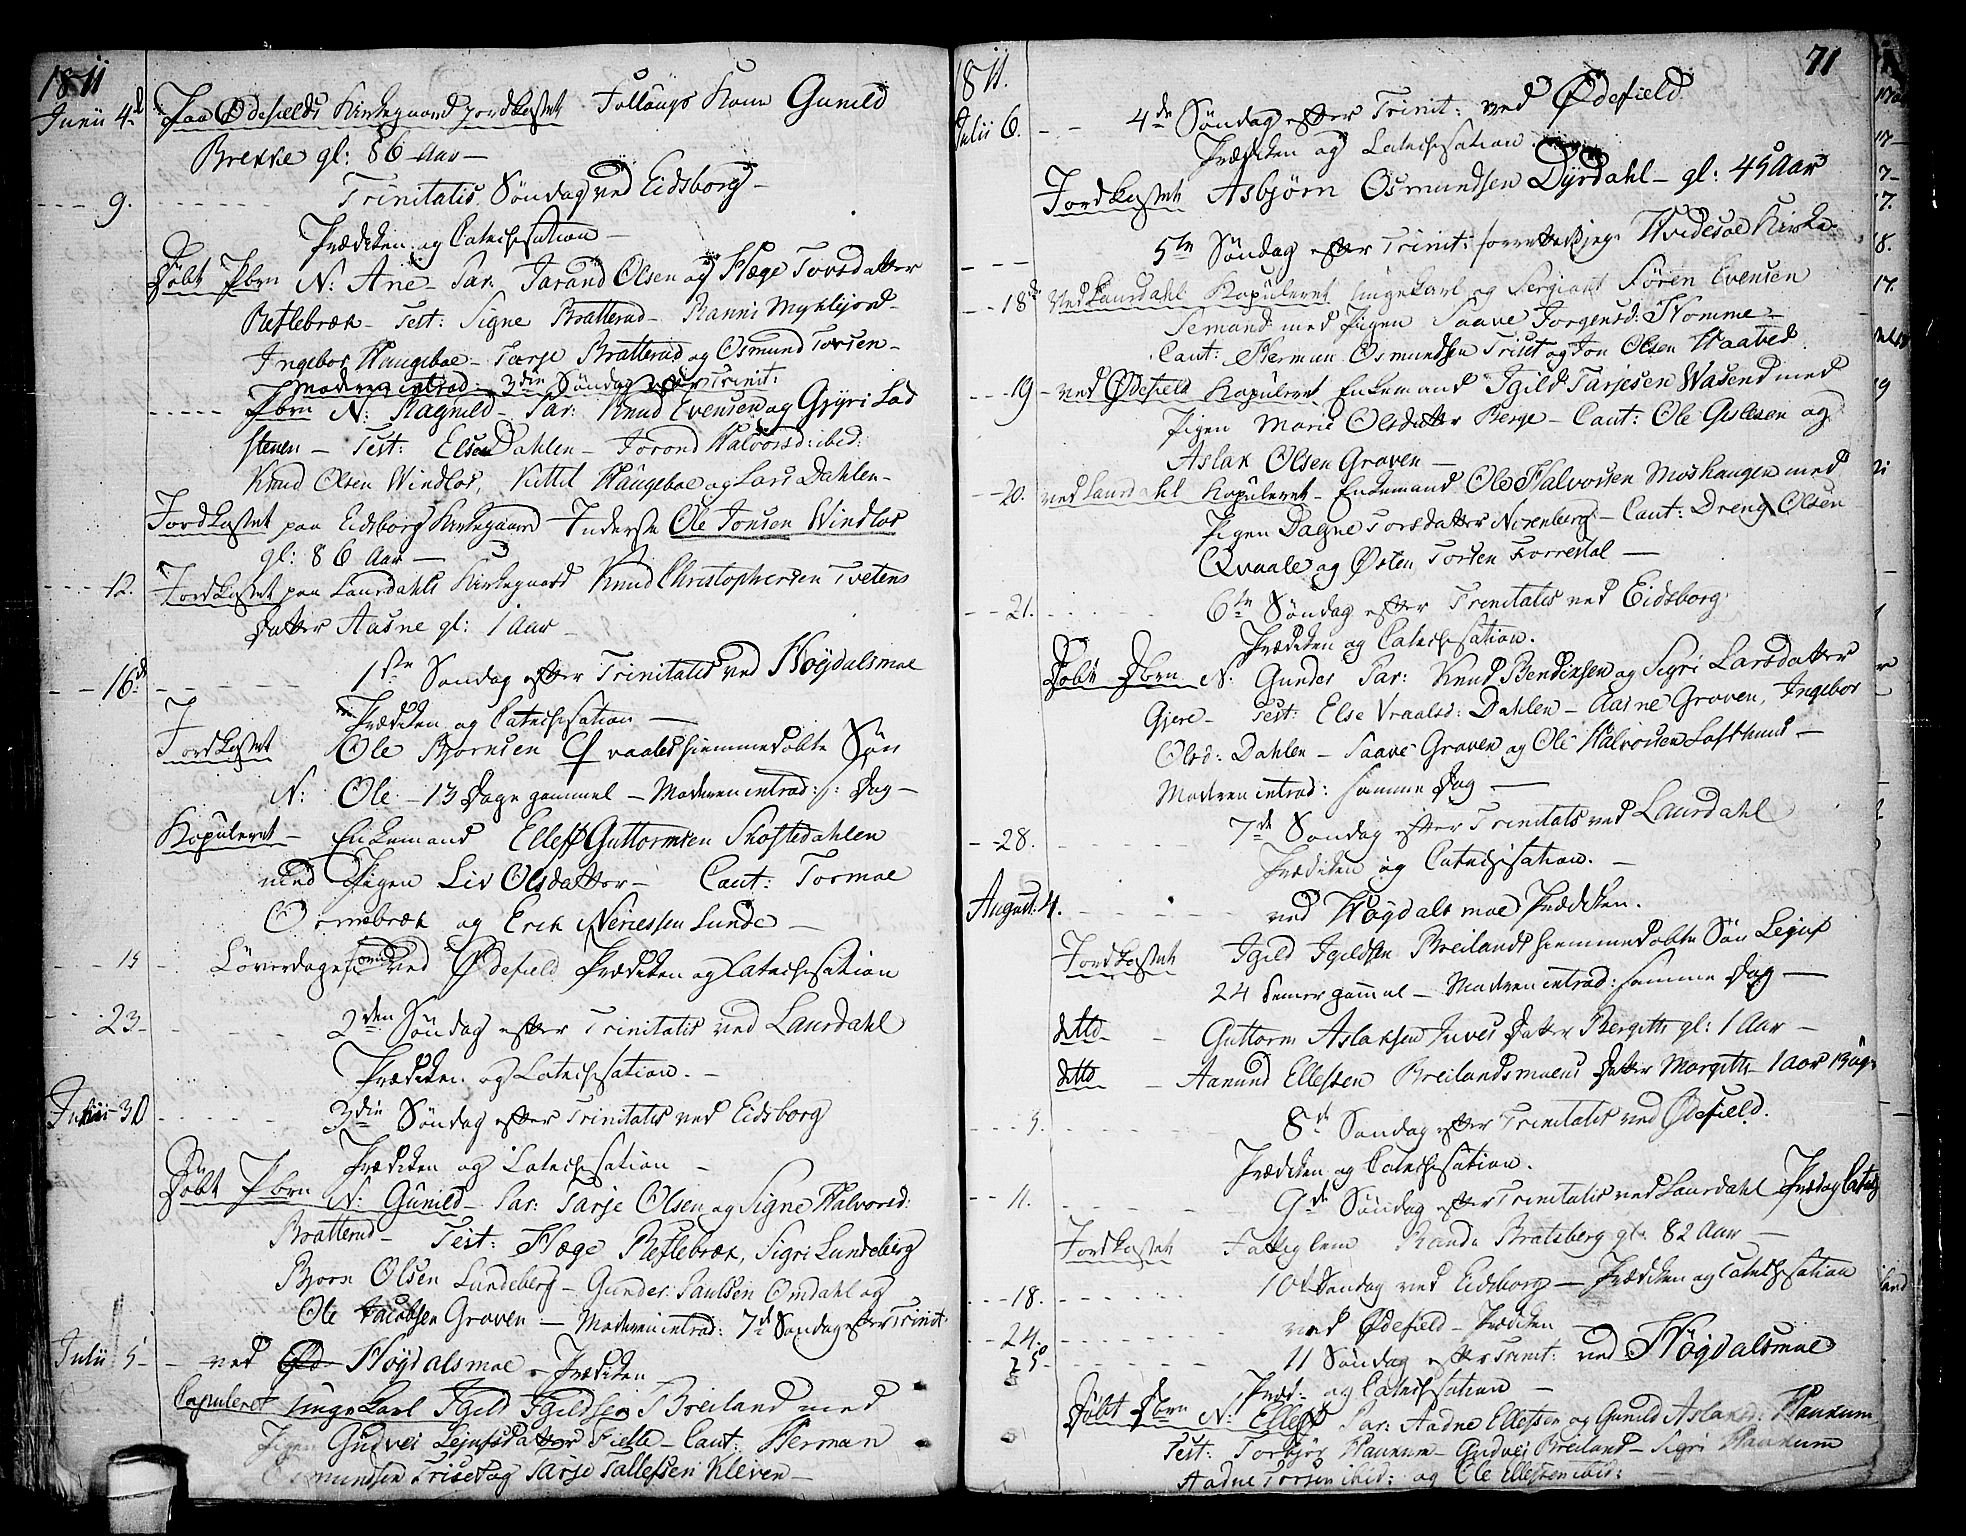 1811
Junii 4d Paa Ødefields Kirkegaard jordkastet Follaugs Kone Gunild
Brekke gl: 86 Aar —
9. Trinitatis Søndag ved Eidsborg —
Prædiken og Catechisation —
Døbt Pbrn N: Ane — Par: Jarand Olsen og Hæge Torsdatter
Reflebræk — Test: Signe Bratterud — Ranni Myklejord —
Ingebor Haugeboe — Tarje Bratterud og Osmund Torsen —
Moderen introd: 3die Søndag efter Trinit:
Pbrn N: Ragnild — Par: Knud Evensen og Gyri Lad
stenen — Test: Else Dahlen — Jorond Halvorsd: ibid:
Knud Olsen Windlos, Kittil Haugeboe og Lars Dahlen —
Jordkastet paa Eidsborg Kirkegaard Inderste Ole Jonsen Windlos
gl: 86 Aar —
12. Jordkastet paa Laurdahls Kirkegaard Knud Christophersen Tvetens
Datter Aasne gl: 1 Aar —
16d 1ste Søndag efter Trinitatis ved Høydalsmoe
Prædiken og Catechisation —
Jordkastet Ole Bjornsen Qvaales hiemmedøbte Søn
N: Ole — 13 Dage gammel — Moderen introd: s: Dag —
Kopuleret — Enkemand Ellef Guttormsen Skoftedahlen
med Pigen Liv Olsdatter — Caut: Tormoe
Ormebræk og Erik Neriessen Lunde —
15 Løverdagen forud ved Ødefield Prædiken og Catechisation
23 — 2den Søndag efter Trinitatis ved Laurdahl
Prædiken og Catechisation. —
Junii 30 3die Søndag efter Trinitatis ved Eidsborg
Prædiken og Catechisation —
Døbt Pbrn N: Gunild — Par: Tarje Olsen og Signe Halvorsd:
Bratterud — Test: Hæge Reflebræk, Sigri Lundeberg
Bjorn Olsen Lundeberg — Gunder Paulsen Omdahl og
Ole Jacobsen Groven — Moderen introd: 7d Søndag efter Trinit:
Julii 5 — ved Høydalsmoe — Prædiken
Copuleret unge Karl Igild Igildsen Breiland med
Pigen Gudvei Lejufsdatter Fielle — Caut: Herman
Osmundsen Triset og Tarje Tallefsen Kleven —
1811. 71
Julii 6. 4de Søndag efter Trinit: ved Ødefield.
Prædiken og Catechisation.
Jordkastet Asbjørn Osmundsen Dyrdahl — gl: 45 Aar
5te Søndag efter Trinit: forrettet jeg i Hvidesøe Kirke.
18de Ved Laurdahl Kopuleret Ungekarl og Sergiant Søren Evensen
Semand med Pigen Saave Jorgensd: Homme —
Caut: Herman Osmundsen Triset og Jon Olsen Haatved.
19 — ved Ødefield Kopuleret Enkemand Igild Tarjesen Wasend med
Pigen Marie Olsdatter Berge — Caut: Ole Gislesen og
Aslak Olsen Groven —
20. ved Laurdahl Kopuleret — Enkemand Ole Halvorsen Moshaugen med
Pigen Dagne Torsdatter Nordenberg — Caut: Dreng Olsen
Qvaale og Østen Torsen Forrestal —
21. 6te Søndag efter Trinitatis ved Eidsborg
Prædiken og Catechisation.
Døbt Dbrn N: Gunder Par: Knud Bendixsen og Sigri Larsdatter
Gjere — Test: Else Vraalsd: Dahlen — Aasne Groven, Ingebor
Olsd: Dahlen — Saave Groven og Ole Halvorsen Lofthuus —
Moderen introd: samme Dag —
28. 7de Søndag efter Trinitatis ved Laurdahl
Prædiken og Catechisation. —
August: 4. ved Høydalsmoe Prædiken.
Jordkastet Igild Igildsen Breilands hiemmedøbte Søn Lejuf
24 timer gammel — Moderen introd: samme Dag —
ditto Guttorm Aslaksen Juves Datter Bergitte gl: 1 Aar —
ditto — Aanund Ellefsen Breilandsmoens Datter Margitte 1 Aar
5. 8de Søndag efter Trinitatis ved Ødefield.
Prædiken og Catechisation.
11. 9de Søndag efter Trinitatis ved Laurdahl Præd og Catech
Jordkastet Fattiglem Rande Bratsberg gl: 82 Aar —
18. 10t Søndag ved Eidsborg — Prædiken og Catechisation
24. ved Ødefield — Prædiken —
25 11 Søndag efter Trinit: ved Høgdalsmoe
Præd: og Catechisation —
Døbt Dbrn N: Ellef Par: Aadne Ellefsen og Gunild Aslaksd: Haukum
Test: Torbjør Haukum — Gudvei Breiland — Sigri Haukum
Aadne Torsen ibid: og Ole Ellefsen ibid: